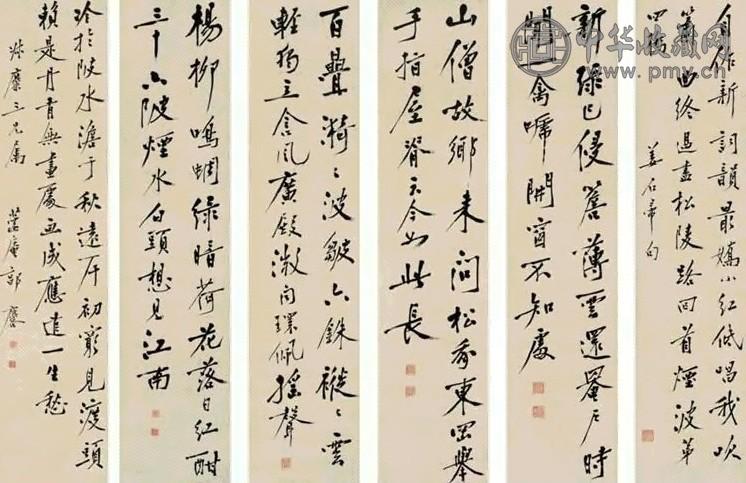 中华收藏网
www.pmy.cn
自作新詞韻最嬌小紅低唱我吹
簫曲終過盡松陵路回首煙波第
四橋 姜石帚句
新綠已侵簷薄雲還罨戶時
聞一禽啼開窗不知處
山僧故鄉來問松我東岡舉
手指屋脊云今如此長
百疊漪〻波皺六銖縰〻雲
輕獨立含風廣殿微聞環佩搖聲
楊柳鳴蜩綠暗荷花落日紅酣
三十六陂煙水白頭想見江南
冷於陂水澹于秋遠岸初窮見渡頭
賴是丹青無畫處画成應遣一生愁
三兄屬 蘧庵郭麐